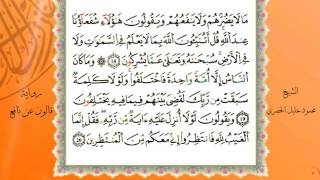 مَا لَا يَضُرُّهُمْ وَلَا يَنفَعُهُمْ وَيَقُولُونَ هَٰٓؤُلَآءِ شُفَعَٰٓؤُنَا
عِندَ اَ۬للَّهِ قُلَ اَتُنَبِّـُٔونَ اَ۬للَّهَ بِمَا لَا يَعْلَمُ فِے اِ۬لسَّمَٰوَٰتِ وَلَا
فِے اِ۬لَارْضِ سُبْحَٰنَهُۥ وَتَعَٰلَىٰ عَمَّا يُشْرِكُونَ ١٨ وَمَا كَانَ
اَ۬لنَّاسُ إِلَّآ أُمَّةً وَٰحِدَةً فَاخْتَلَفُوا۟ وَلَوْلَا كَلِمَةٌ
سَبَقَتْ مِن رَّبِّكَ لَقُضِيَ بَيْنَهُمْ فِيمَا فِيهِ يَخْتَلِفُونَ
١٩ وَيَقُولُونَ لَوْلَآ أُنزِلَ عَلَيْهِ ءَايَةٌ مِّن رَّبِّهِۦ فَقُلِ اِنَّمَا
اَ۬لْغَيْبُ لِلهِ فَانتَظِرُوٓا۟ إِنِّے مَعَكُم مِّنَ اَ۬لْمُنتَظِرِينَ ٢٠
رواية
قالون عن نافع
الشيخ
محمود خليل الحصري